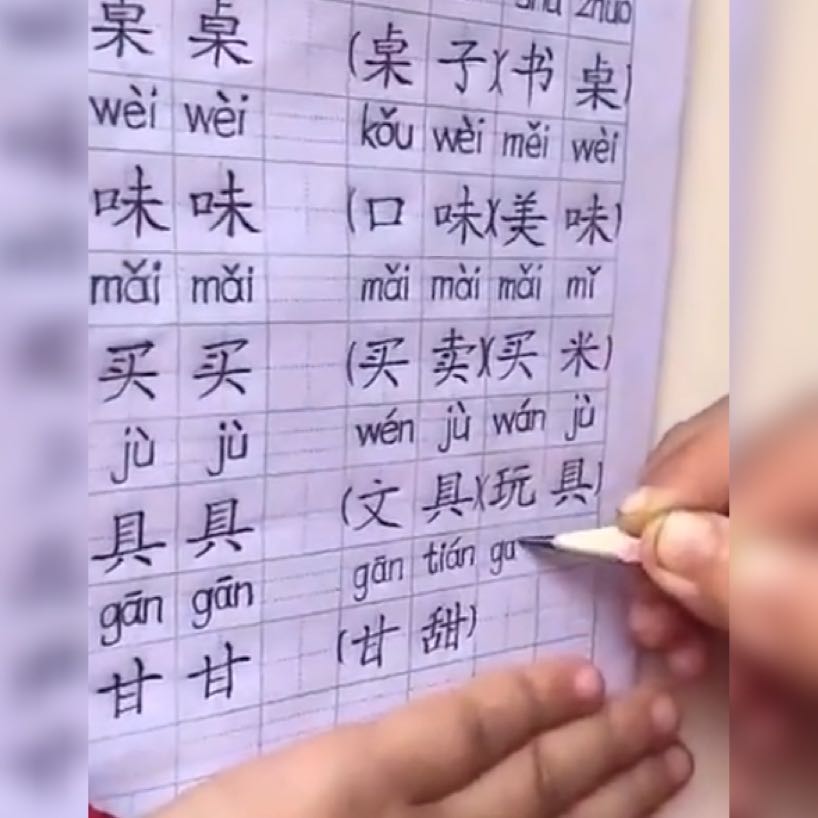 shū zhuō
桌 桌 (桌 子)(书 桌)
wèi wèi kǒu wèi měi wèi
味 味 (口 味)(美 味)
mǎi mǎi mǎi mài mǎi mǐ
买 买 (买 卖)(买 米)
jù jù wén jù wán jù
具 具 (文 具)(玩 具)
gān gān gān tián ga
甘 甘 (甘 甜)